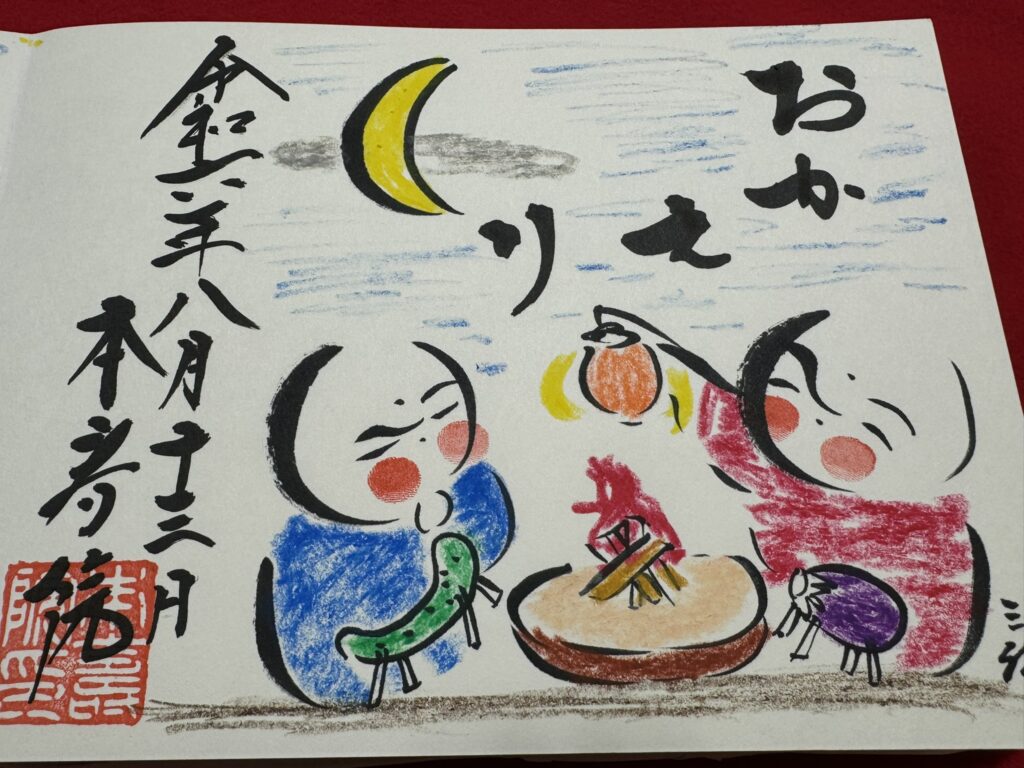 おかえり
令和六年八月十三日
本寿院